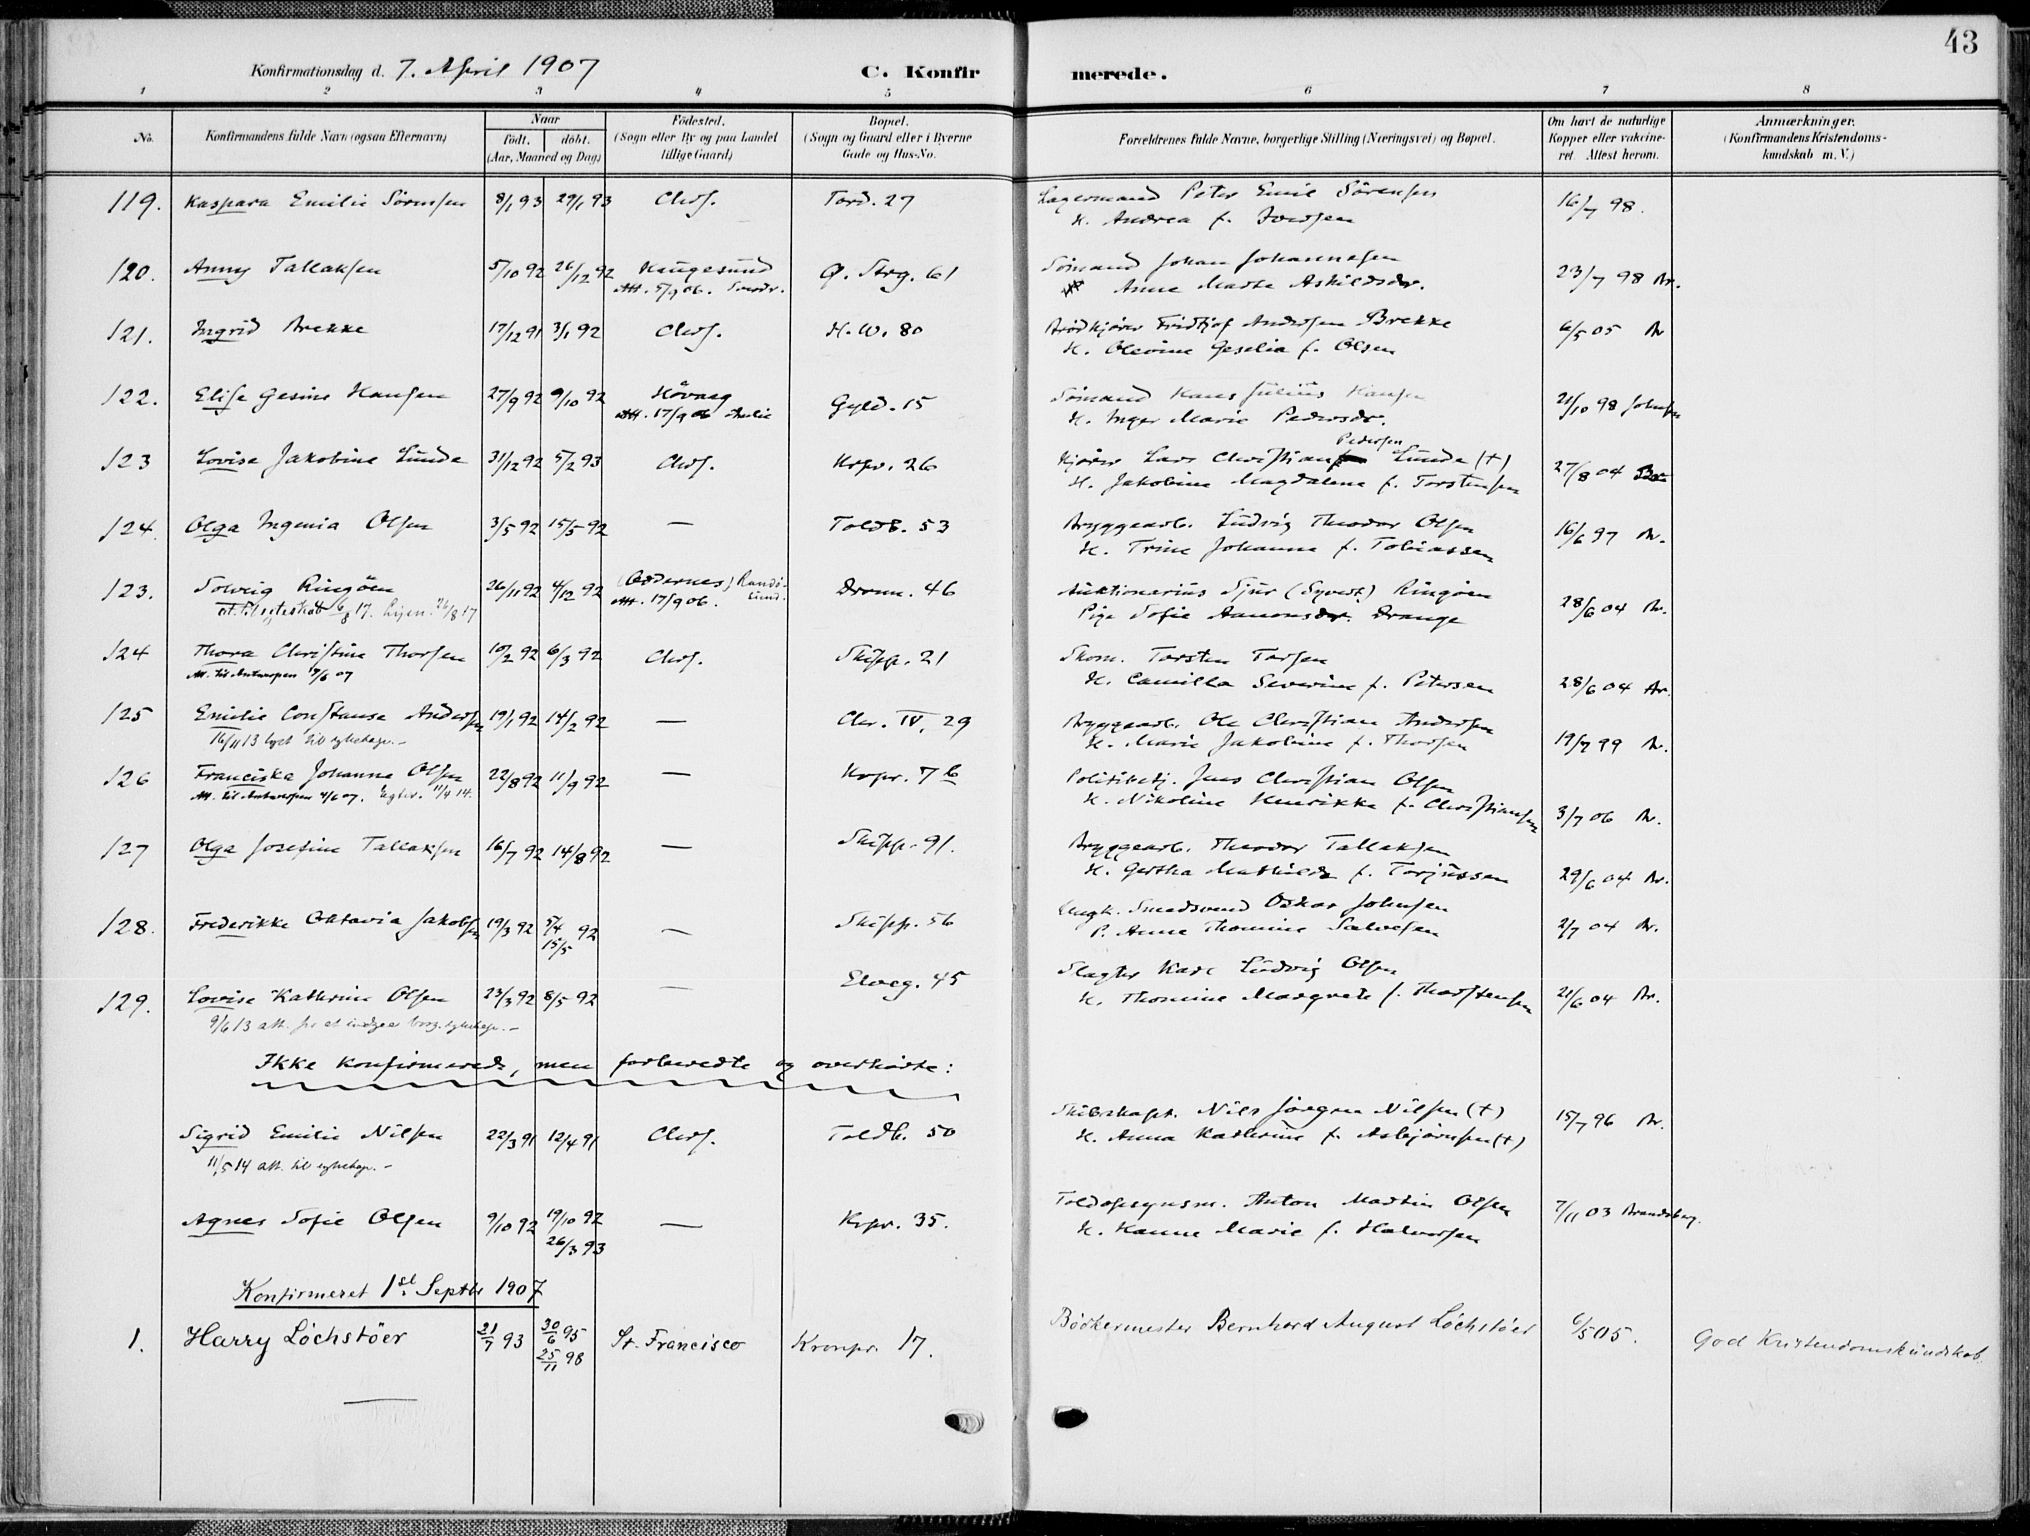 43
Konfirmationsdag d. 7. April 1907 C. Konfir merede.
1 2 3 4 5 6 7 8
No. Konfirmandens fulde Navn (ogsaa Efternavn) Naar født. døbt. (Aar, Maaned og Dag) Fødested. (Sogn eller By og paa Landet tillige Gaard) Bopæl. (Sogn og Gaard eller i Byerne Gade og Hus-No. Forældrenes fulde Navne, borgerlige Stilling (Næringsvei) og Bopæl. Om havt de naturlige Kopper eller vakcineret. Attest herom. Anmærkninger. (Konfirmandens Kristendomskundskab m. V.)
119. Kaspara Emilie Sörensen 8/1 93 29/1 93 Chrs. Tord. 27 Lagermand Peter Emil Sörensen 16/7 98.
H. Andrea f. Iversen
120. Anny Tallaksen 5/10 92 26/12 92 Haugesund Ø. Strg. 61 Sömand Johan Johannesen 23/7 98 Br.
Att. 5/9 06. Anne Marte Askildsdr.
121. Ingrid Brekke 17/12 91 3/1 92 Chrs. H. W. 80 Brödkjörer Fridtjof Andersen Brekke 6/5 05 Br
H. Olevine Geselia f. Olsen
122. Elise Gesine Hansen 27/9 92 9/10 92 Hövaag Gyld. 15 Sömand Hans Julius Hansen 21/10 98 Johnsen
Att. 17/9 06 H. Inger Marie Pedersdr.
123 Lovise Jakobine Lunde 31/12 92 5/2 93 Chrs. Krpr. 26 Kjörer Lars Christian Pedersen Lunde (+) 27/8 04
H. Jakobine Magdalene f. Torstensen
124. Olga Ingenia Olsen 3/5 92 15/5 92 — Toldb. 53 Bryggearb. Ludvig Theodor Olsen 16/6 97 Br.
H. Trine Johanne f. Tobiassen
123. Solveig Ringöen 26/11 92 4/12 92 (Oddernes) Randösund. Dronn. 46 Auktionarius Sjur (Syvert) Ringöen 28/6 04 Br.
att. til egteskab 6/8 17. Att. 17/9 06. Pige Sofie Aanonsdr. Drange
124 Thora Christine Thorsen 10/2 92 6/3 92 Chrs. Skipp. 21 Skom. Torsten Torsen 28/6 04 Br.
Att. til Antwerpen 17/6 07 H. Camilla Severine f. Petersen
125 Emilie Constanse Andersen 19/1 92 14/2 92 — Chr. IV, 29 Bryggearb. Ole Christian Andersen 19/7 99 Br.
16/11 13 lyst til H. Marie Jakobine f. Thorsen
126 Franciska Johanna Olsen 22/8 92 11/9 92 — Krpr. 7 b Politibetj. Jens Christian Olsen 3/7 06 Br.
Att. til Antwerpen 4/6 07. H. Nikoline Henrikke f. Christiansen
127 Olga Josefine Tallaksen 16/7 92 14/8 92 — Skipp. 91. Bryggearb. Theodor Tallaksen 29/6 04 Br.
H. Gertha Mathilde f. Torjussen
128. Frederikke Oktavia Jakobsen 19/3 92 5/4 15/5 92 — Skipp. 56 Ungk. Smedsvend Oskar Johnsen 2/7 04 Br.
P. Anne Thomine Salvesen
129. Lovise Kathrine Olsen 23/3 92 8/5 92 — Elveg. 45 Slagter Karl Ludvig Olsen 21/6 04 Br.
9/6 13 att. for at indgaa H. Thomine Margrete f. Thorstensen
Ikke konfirmerede, men forberedte og overhörte:
Sigrid Emilie Nilsen 22/3 91 12/4 91 Chrs. Toldb. 50 Skibskapt. Nils Jörgen Nilsen (+) 15/7 96 Br.
11/5 14 att. til H. Anna Kathrine f. Asbjörnsen (+)
Agnes Sofie Olsen 9/10 92 19/10 92 26/3 93 — Krpr. 35. Toldopsynsm. Anton Martin Olsen 7/11 03 Brandsberg.
H. Hanne Marie f. Halvorsen
Konfirmeret 1st. Septbr 1907
1. Harry Löchstöer 21/7 93 30/6 95 25/11 98 St. Francisco Kronpr. 17. Bödkermester Bernhard August Löchstöer 6/5 05. God Kristendomskundskab.